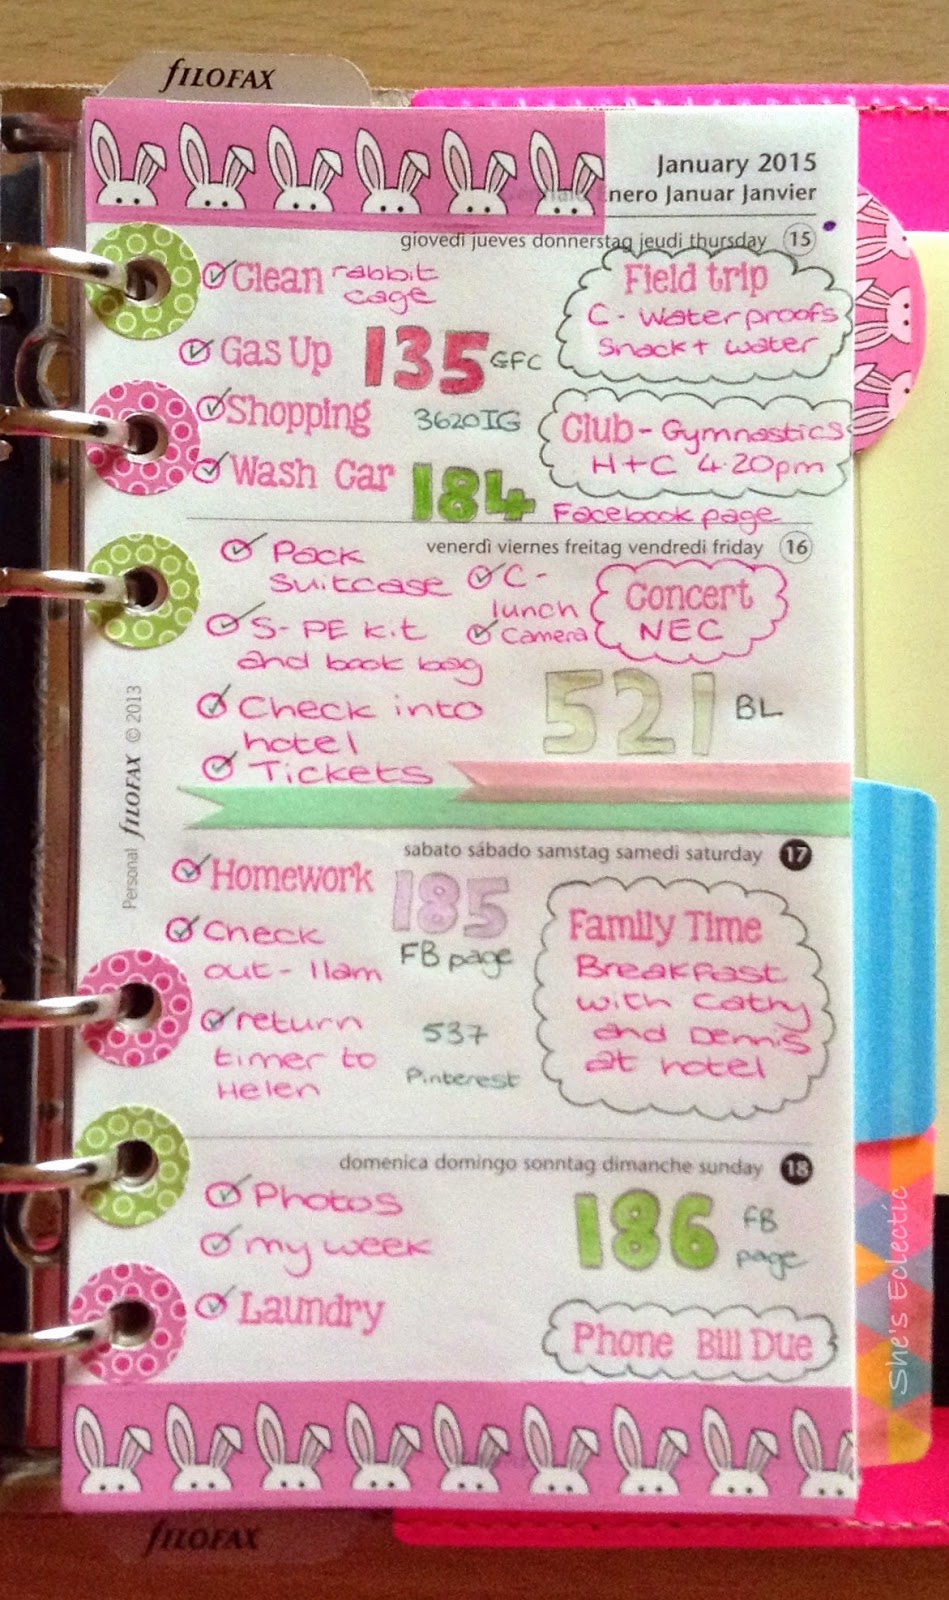 fILOFAX
January 2015
Enero Januar Janvier
giovedì jueves donnerstag jeudi thursday 15
Clean rabbit
cage
Field trip
C - Waterproofs
Snack + water
Gas Up
135 GFC
Shopping
3620 IG
Club - Gymnastics
H + C 4.20pm
Wash Car
184 Facebook page
venerdì viernes freitag vendredi friday 16
Pack
Suitcase
C -
lunch
Camera
Concert
NEC
S - PE kit
and book bag
Check into
hotel
521 BL
Tickets
sabato sábado samstag samedi saturday 17
Homework
185
FB page
Check
out - 11am
Family Time
Breakfast
with Cathy
and Dennis
at hotel
return
timer to
Helen
537
Pinterest
domenica domingo sonntag dimanche sunday 18
Photos
my week
186 FB
page
Laundry
Phone Bill Due
Personal fILOFAX © 2013
She's Eclectic
fILOFAX